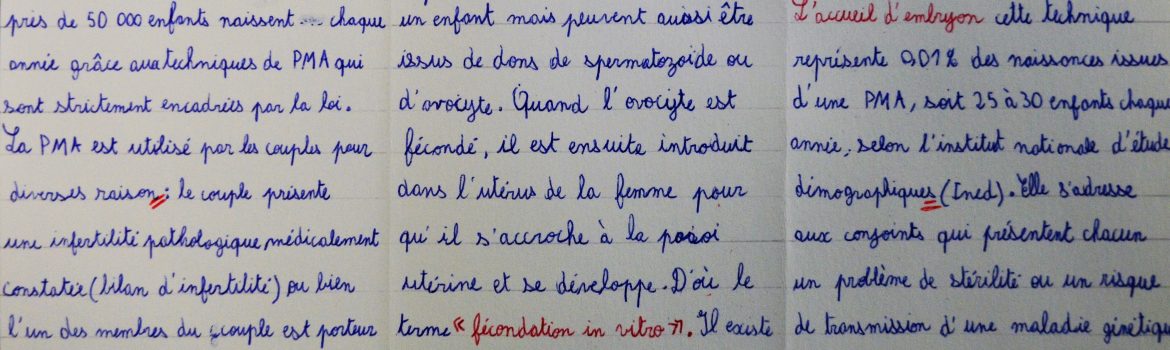 près de 50 000 enfants naissent chaque
année grâce aux techniques de PMA qui
sont strictement encadrées par la loi.
La PMA est utilisé par les couples pour
diverses raison : le couple présente
une infertilité pathologique médicalement
constatée (bilan d'infertilité) ou bien
l'un des membres du couple est porteur
un enfant mais peuvent aussi être
issus de dons de spermatozoïde ou
d'ovocyte. Quand l'ovocyte est
fécondé, il est ensuite introduit
dans l'utérus de la femme pour
qu'il s'accroche à la paroi
utérine et se développe. D'où le
terme « fécondation in vitro ». Il existe
L'accueil d'embryon cette technique
représente 0,01% des naissances issues
d'une PMA, soit 25 à 30 enfants chaque
année, selon l'institut nationale d'étude
démographiques (Ined). Elle s'adresse
aux conjoints qui présentent chacun
un problème de stérilité ou un risque
de transmission d'une maladie génétique